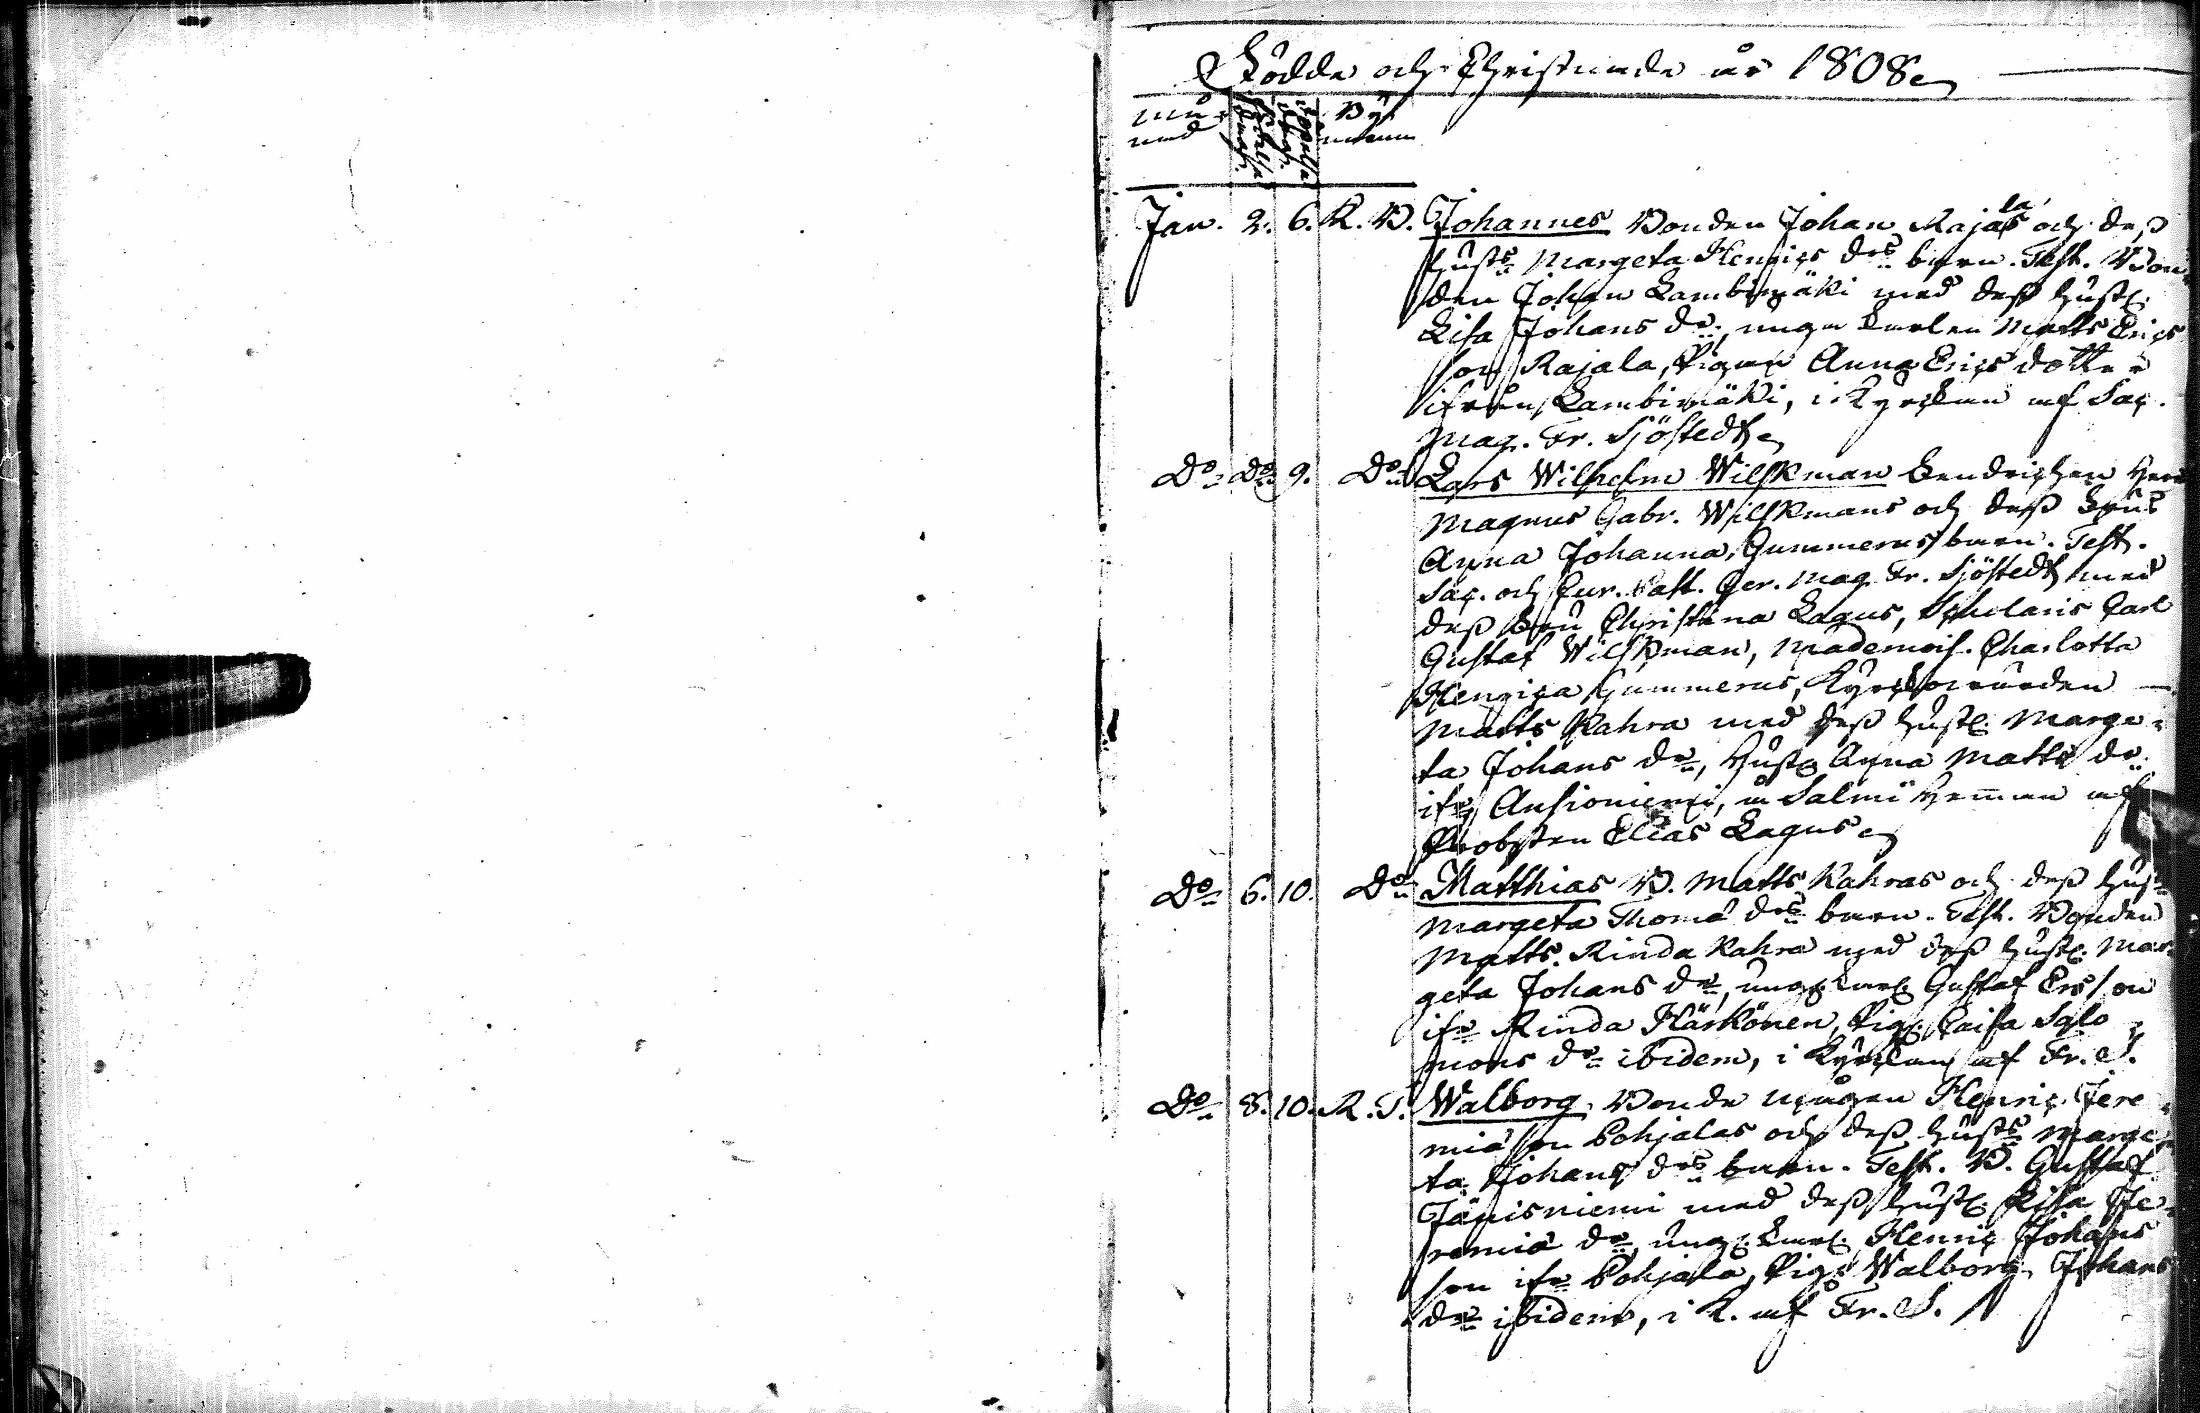 Födde och Christnade år 1808.
Må-
nad
Födelse
dagar.
Döpelse
dagar.
By.
namn
Jan. 2. 6. K. B. Johannes Bonden Johan Rajalas och dess
husts Margeta Henrics drs barn. Test. Bon-
den Johan Lambimäki med dess hust.
Lisa Johans dr, unga karlen Matts Erics
son Rajala, Pigan Anna Erics dotter
ifrån Lambimäki, i Kyrckan af Sac.
Mag. Fr. Sjöstedt
Do Do 9. Do Lars Wilhelm Wilskman Lendrichen Herr
Magnus Gabr. Wilskmans och dess Frus
Anna Johanna Gummerus barn. Test.
Sac. och Cur. Past. Ger. Mag. Fr. Sjöstedt med
dess Fru Christina Lagus, Scholaris Carl
Gustaf Wilskman, Mademois. Charlotta
Henrica Gummerus, Kyrckowärden
Matts Kahra med dess hust. Marge-
ta Johans dr, Hust. Anna Matts dr
ifr Ansioniemi, å Salmi Hemman af
Probsten Elias Lagus
Do 6. 10. Do Matthias B. Matts Kahras och dess husts
Margeta Thomæ drs barn. Test. Bonden
Matts Rinda Kahra med dess hust. Mar-
geta Johans dr, unge karl. Gustaf Ersson
ifr Rinda Härkönen, Pig. Caisa Salo-
mons dr ibidem, i Kyrckan af Fr. S.
Do 8. 10. R. J. Walborg Bonde mågen Henric Jere-
miæson Pohjalas och dess husts Marge-
ta Johans drs barn. Test. B. Gustaf
Jänisniemi med dess hust. Lisa Je-
remiæ dr, ung. karl. Henric Johans
son ifr Pohjala, Pig. Walborg Johans
dr ibidem, i K. af Fr. S.